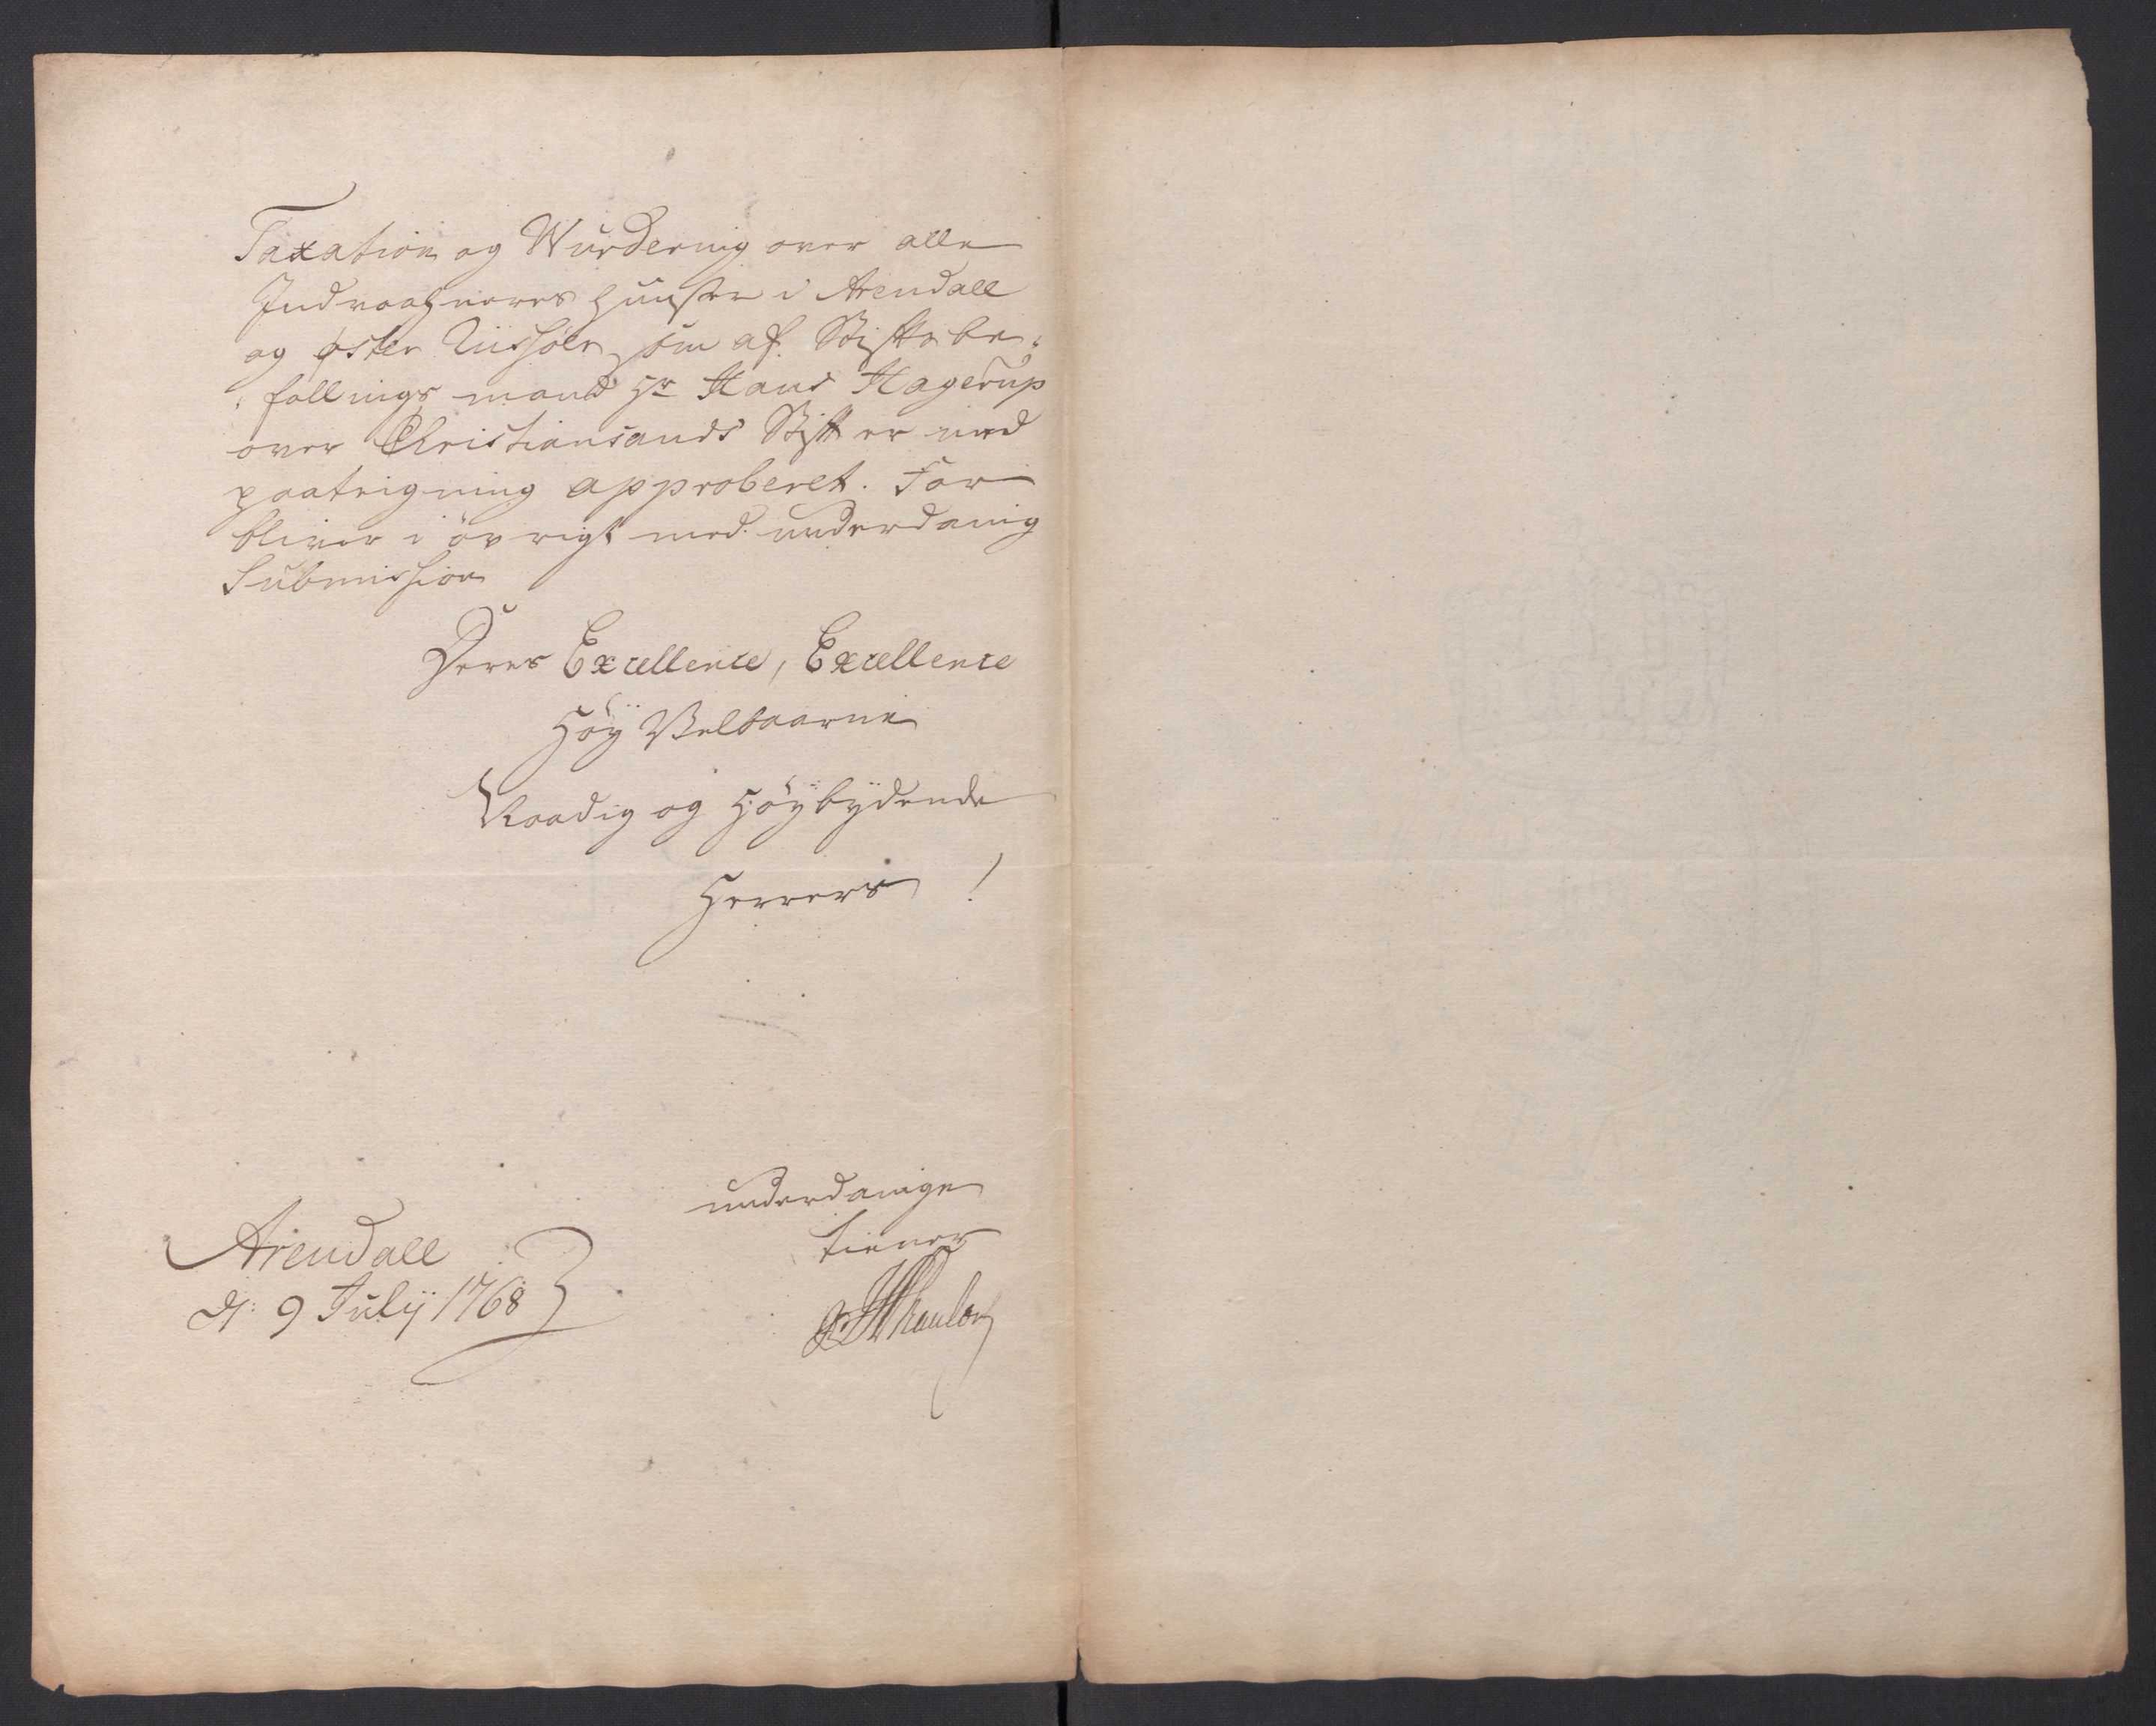 Taxation og Wurdering over alle
Indvaahneres Huuse i Arendall
og øster Riisøer, som af Stiftsbe-
fallingsmand Hr Hans Hagerup
over Christiansands Stift er med
paateigning approberet. For
bliver i øvrigt med underdanig
Submission
Deres Excellence, Excellence
Høy Velbaarne
Naadig og Høybydende
Herrers !
underdanige
tiener
Arendall
d: 9 Julij 1768